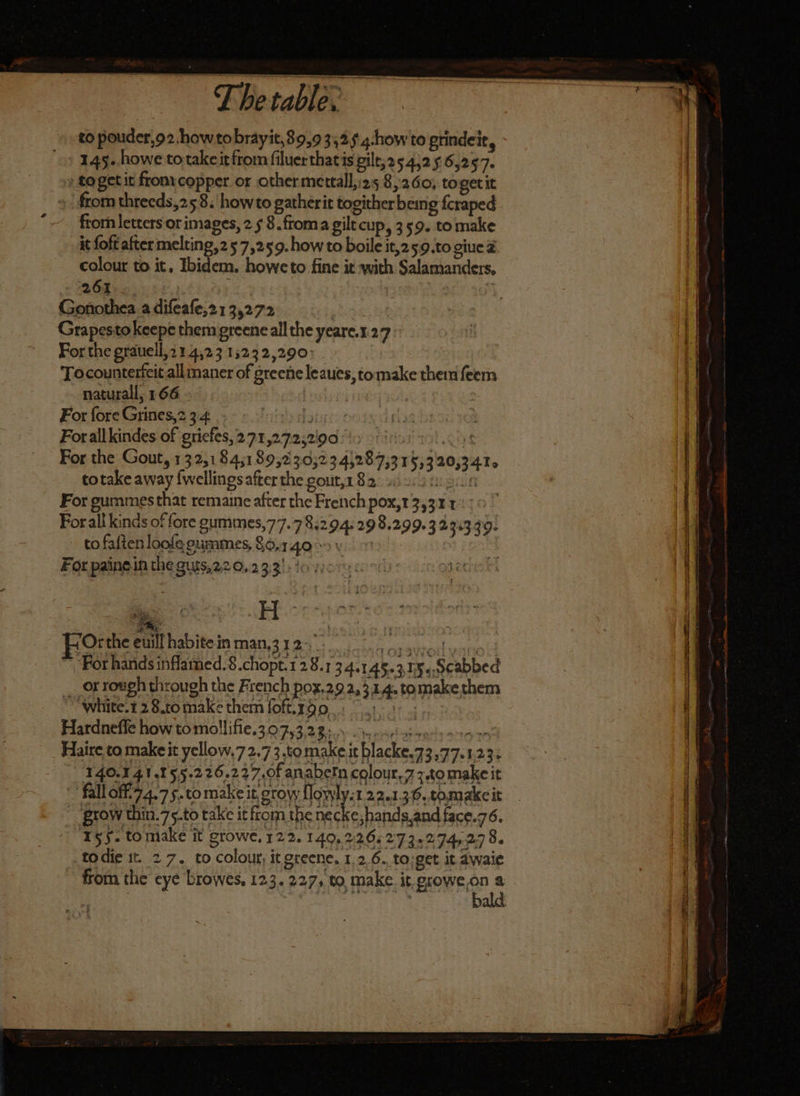 The table.
to pouder,92.how to bray it,89,93,254.how to grinde it,
145. howe to take it from siluer that is gilt,254,256,257.
to get it from copper or other mettall,258,260, to get it
from threeds,258. how to gather it togither being scraped
from letters or images, 258.from a gilt cup, 359. to make
it soft after melting,257,259. how to boile it,259.to giue a
colour to it, Ibidem. howe to fine it with Salamanders,
261.
Gonothea a disease,213,272
Grapes to keepe them greene all the yeare.127
For the grauell,214,231,232,290.
To counterfeit all maner of greene leaues, to make them seem
naturall, 166
For sore Grines,234
For all kindes of griefes, 271,272,290
For the Gout, 132,184,189,230,234,287,315,320,341.
to take away swellings after the gout,182
For gummes that remaine after the French pox,13,311
For all kinds of sore gummes,77.78.294.298.299.323.339.
to fasten loose gummes, 80.140
For paine in the guts,220.233.
H
FOr the euill habite in man,312.
For hands inflamed.8.chopt.128.134.145.315. Scabbed
or rough through the French pox.292,314. to make them
white.128.to make them soft.190.
Hardnesse how to mollifie.307,328.
Haire to make it yellow.72.73.to make it blacke.73.77.123.
140.141.155.226.227.of an abern colour.73.to make it
fall off.74.75.to make it grow slowly.122.136.to make it
grow thin.75.to take it from the necke,hands,and face.76.
155. to make it growe, 122. 140. 226. 273. 274. 278.
to die it. 27. to colour, it greene. 1.26. to get it awaie
from the eye browes, 123. 227, to make it growe on a
bald